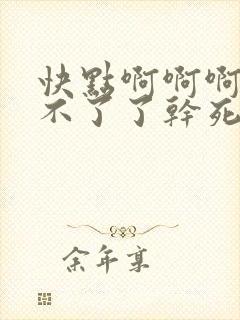 快點啊啊啊
不了了幹死
余年寔